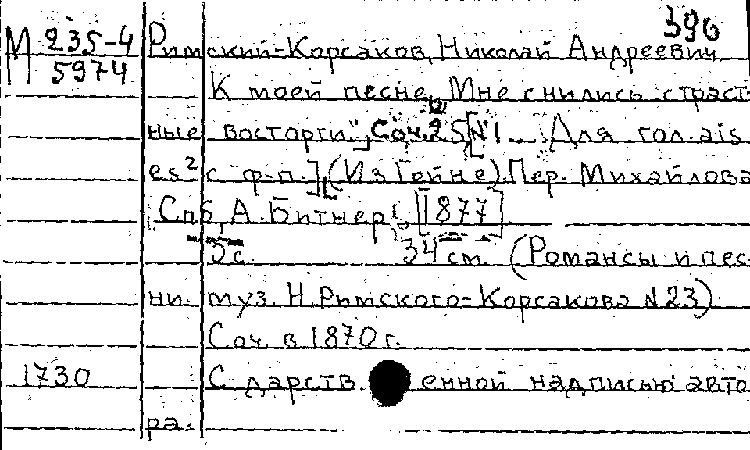 390
М 235-4 Римский-Корсаков, Николай Андреевич
5974
К моей песне „Мне снились страст-
ные восторги". Соч. 25 [№1. Для гол. ais
es² с ф-п.] (Из Гейне). Пер. Михайлова
Спб, А. Битнер, [1877]
5с. 34 см. (Романсы и пес-
ни. муз. Н. Римского-Корсакова №23)
Соч. в 1870 г.
1730 С дарств енной надписью авто
ра.